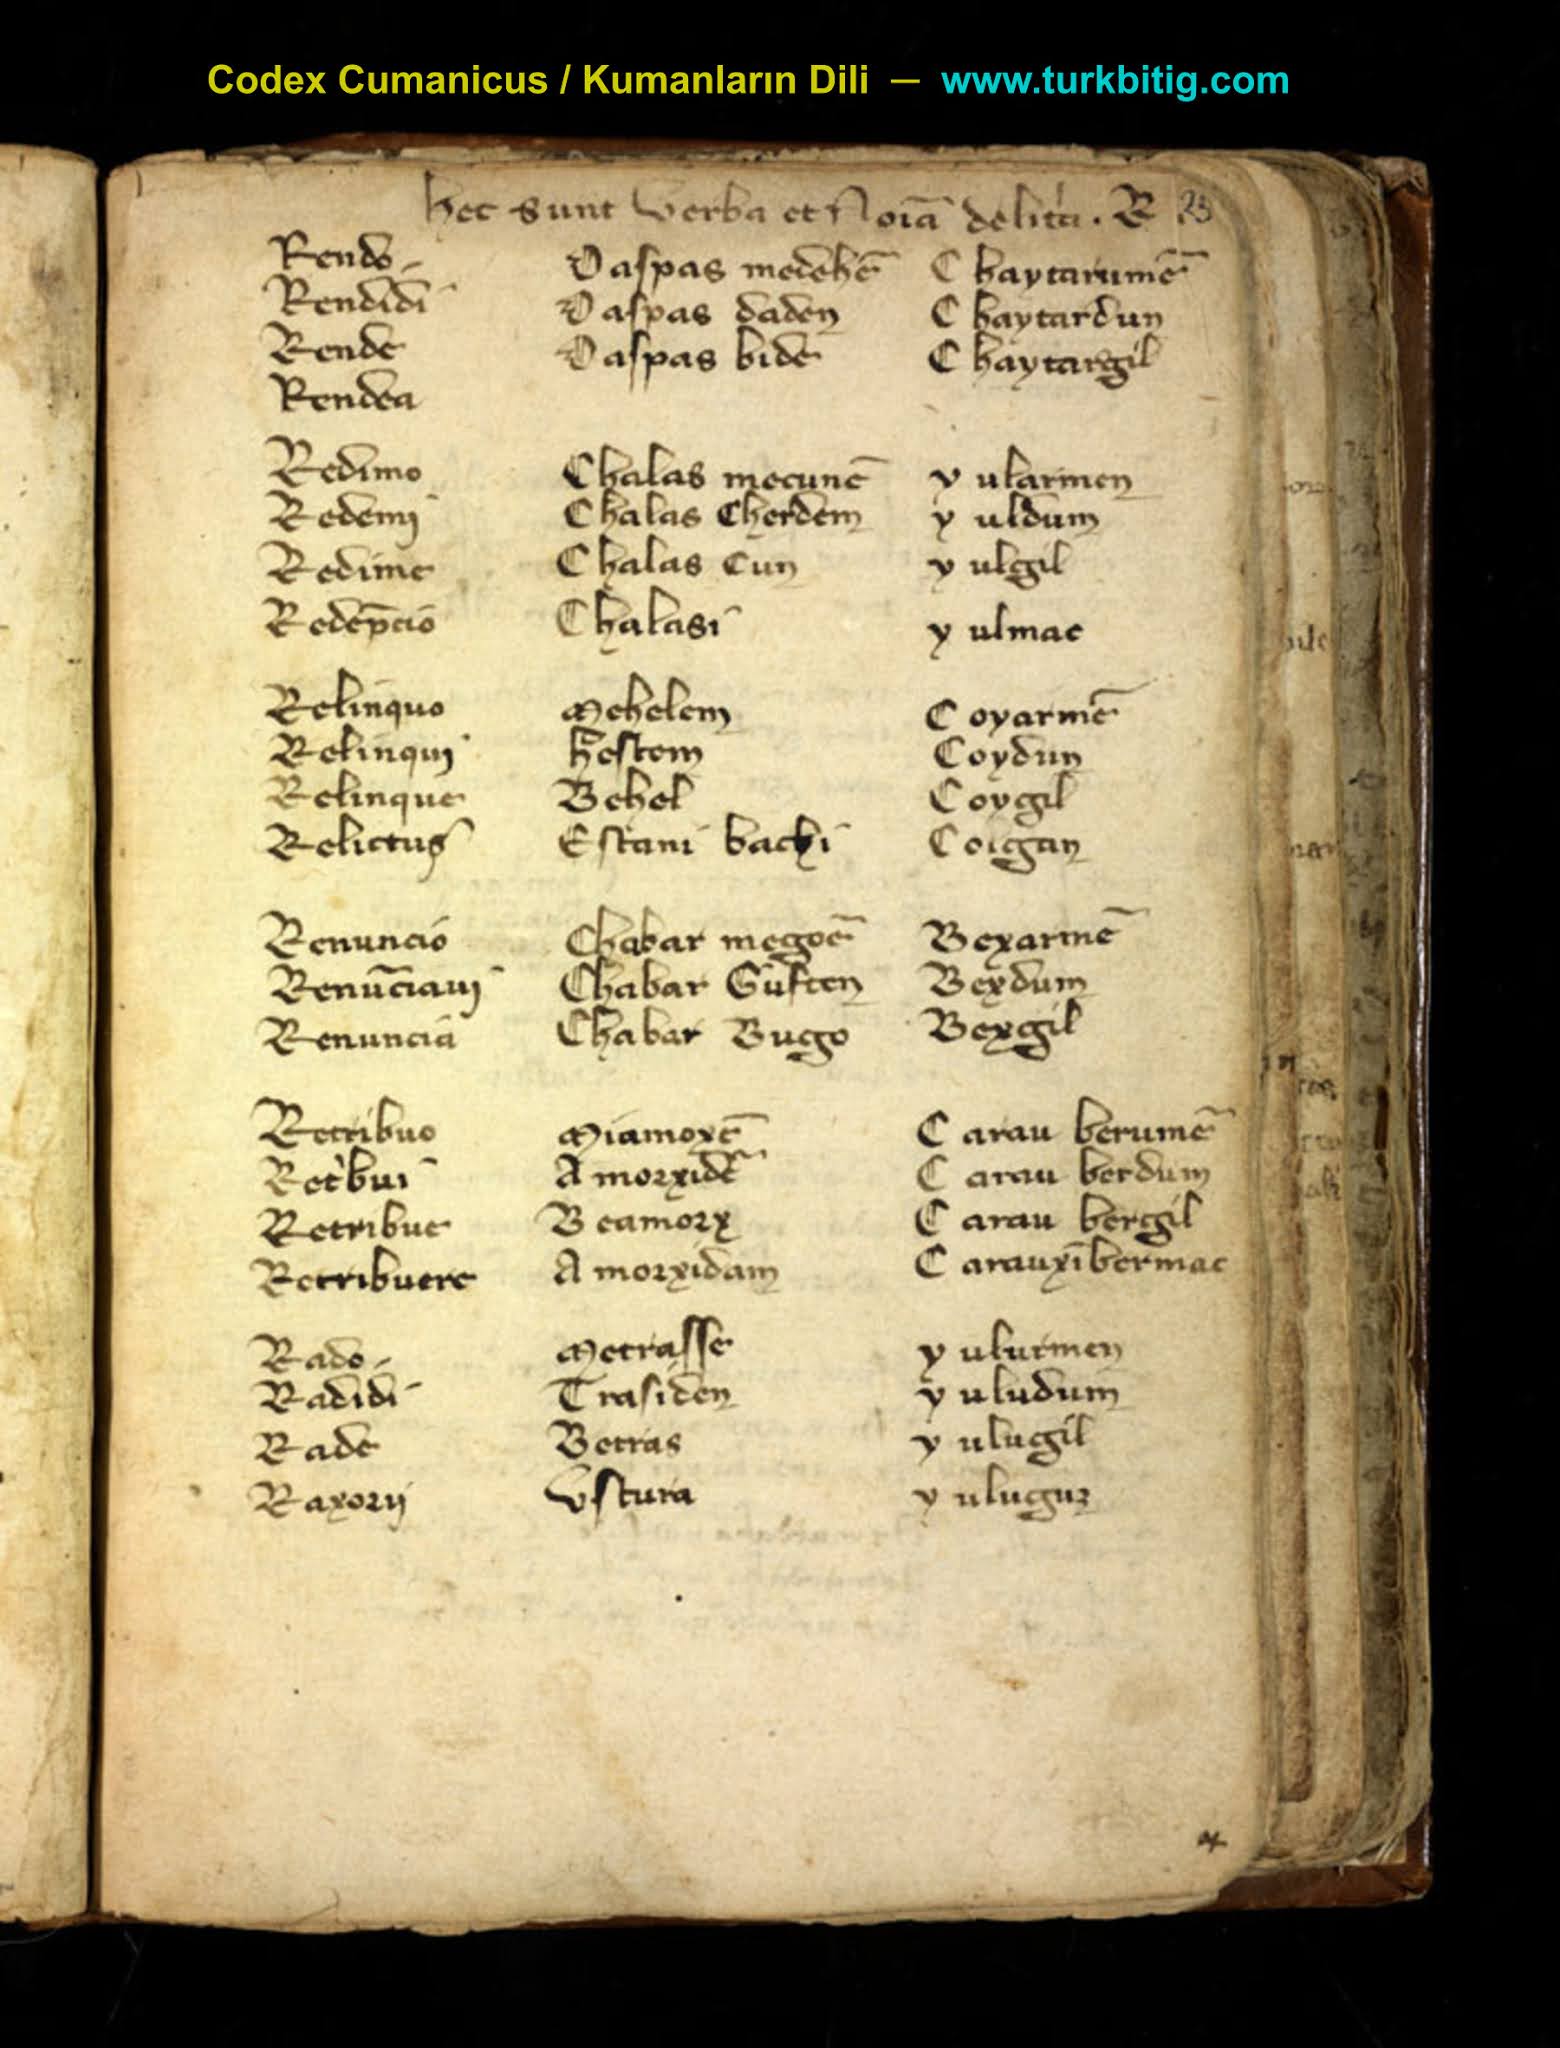 Codex Cumanicus / Kumanların Dili — www.turkbitig.com
hec sunt verba et Noīa de litᷓa. R 25
Rendo Daspas medehē Chaytarumē
Rendidi Daspas daden Chaytardun
Rende Daspas bide Chaytargil
Rendea
Redimo Chalas mecunē yularmen
Redemj Chalas Cherdem yuldum
Redime Chalas Cun yulgil
Redēpcio Chalasi yulmac
Relinquo Mehelem Coyarmē
Relinquj hestem Coydun
Relinque Behel Coygil
Relictus Estani bachi Coigan
Renuncio Chabar megoē Bexarmē
Renūciauj Chabar Guften Bexdum
Renuncia Chabar Bugo Bexgil
Retribuo Miamoxē Carau berumē
Retͥbui Amorxidē Carau berdum
Retribue Beamorx Carau bergil
Retribuere Amorxidam Carauxībermac
Rado Metrasse yulurmen
Radidi Trasiden yuludum
Rade Betras yulugil
Raxorij Vstura yulugur